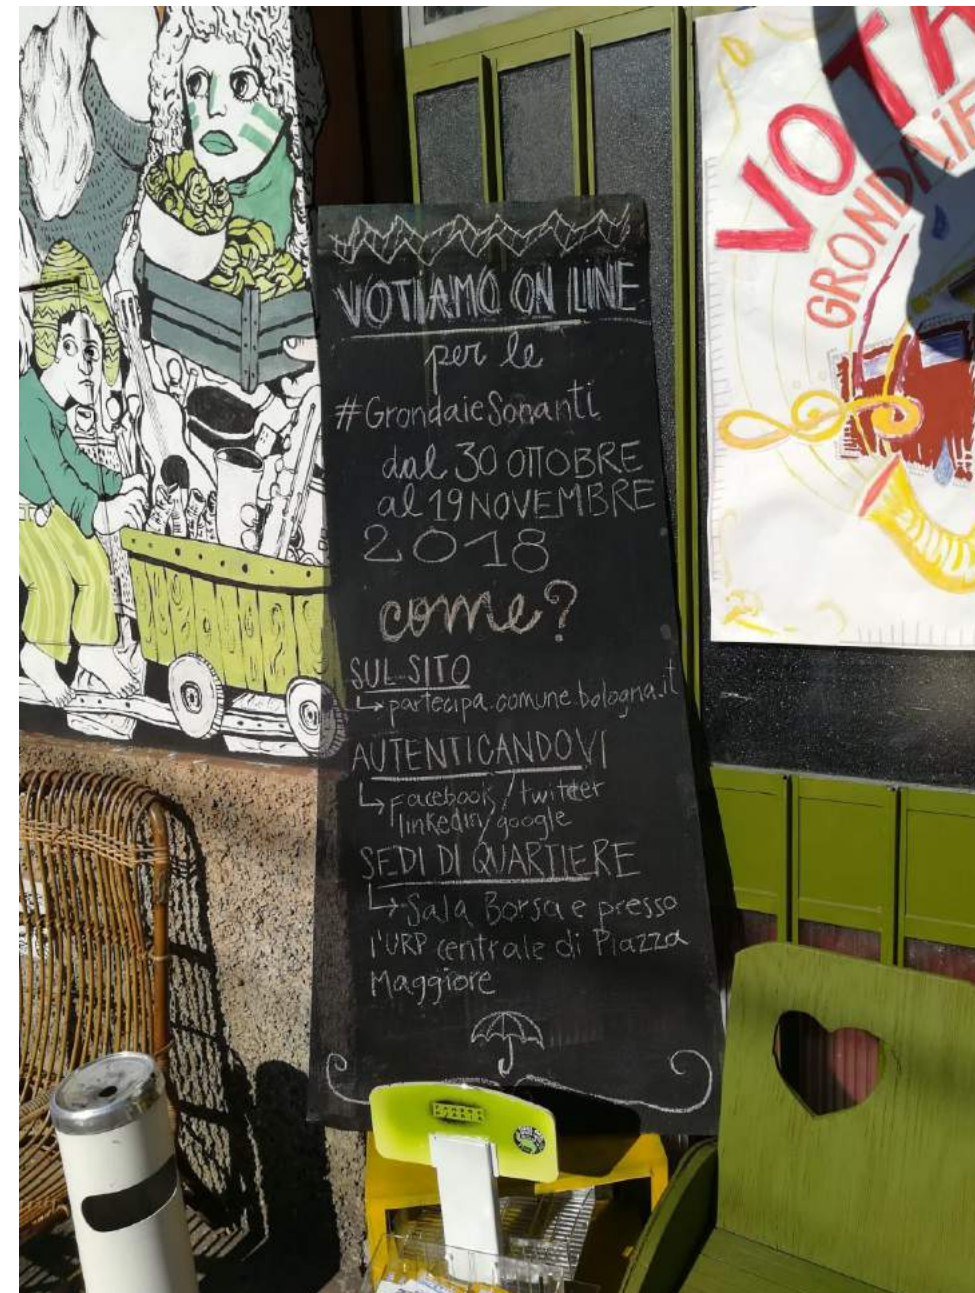 VOTIAMO ON LINE
per le
#GrondaieSonanti
dal 30 OTTOBRE
al 19 NOVEMBRE
2018
come?
SUL SITO
partecipa.comune.bologna.it
AUTENTICANDOVI
Facebook/twitter
linkedin/google
SEDI DI QUARTIERE
Sala Borsa e presso
l'URP centrale di Piazza
Maggiore
VOTA
GRONDAIE